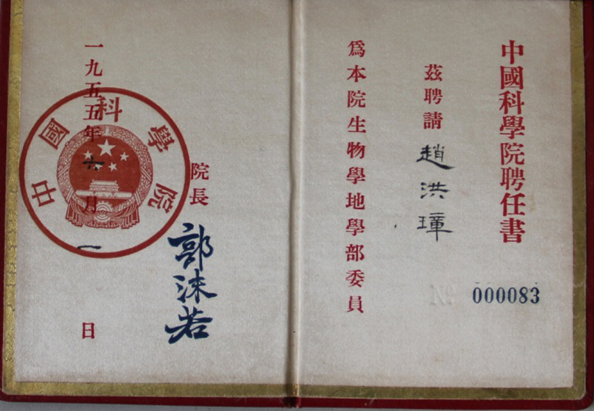 中國科學院聘任書
茲聘請 趙洪璋
爲本院生物學地學部委員
000083
院長 郭沫若
一九五五年六月一日
中國科學院